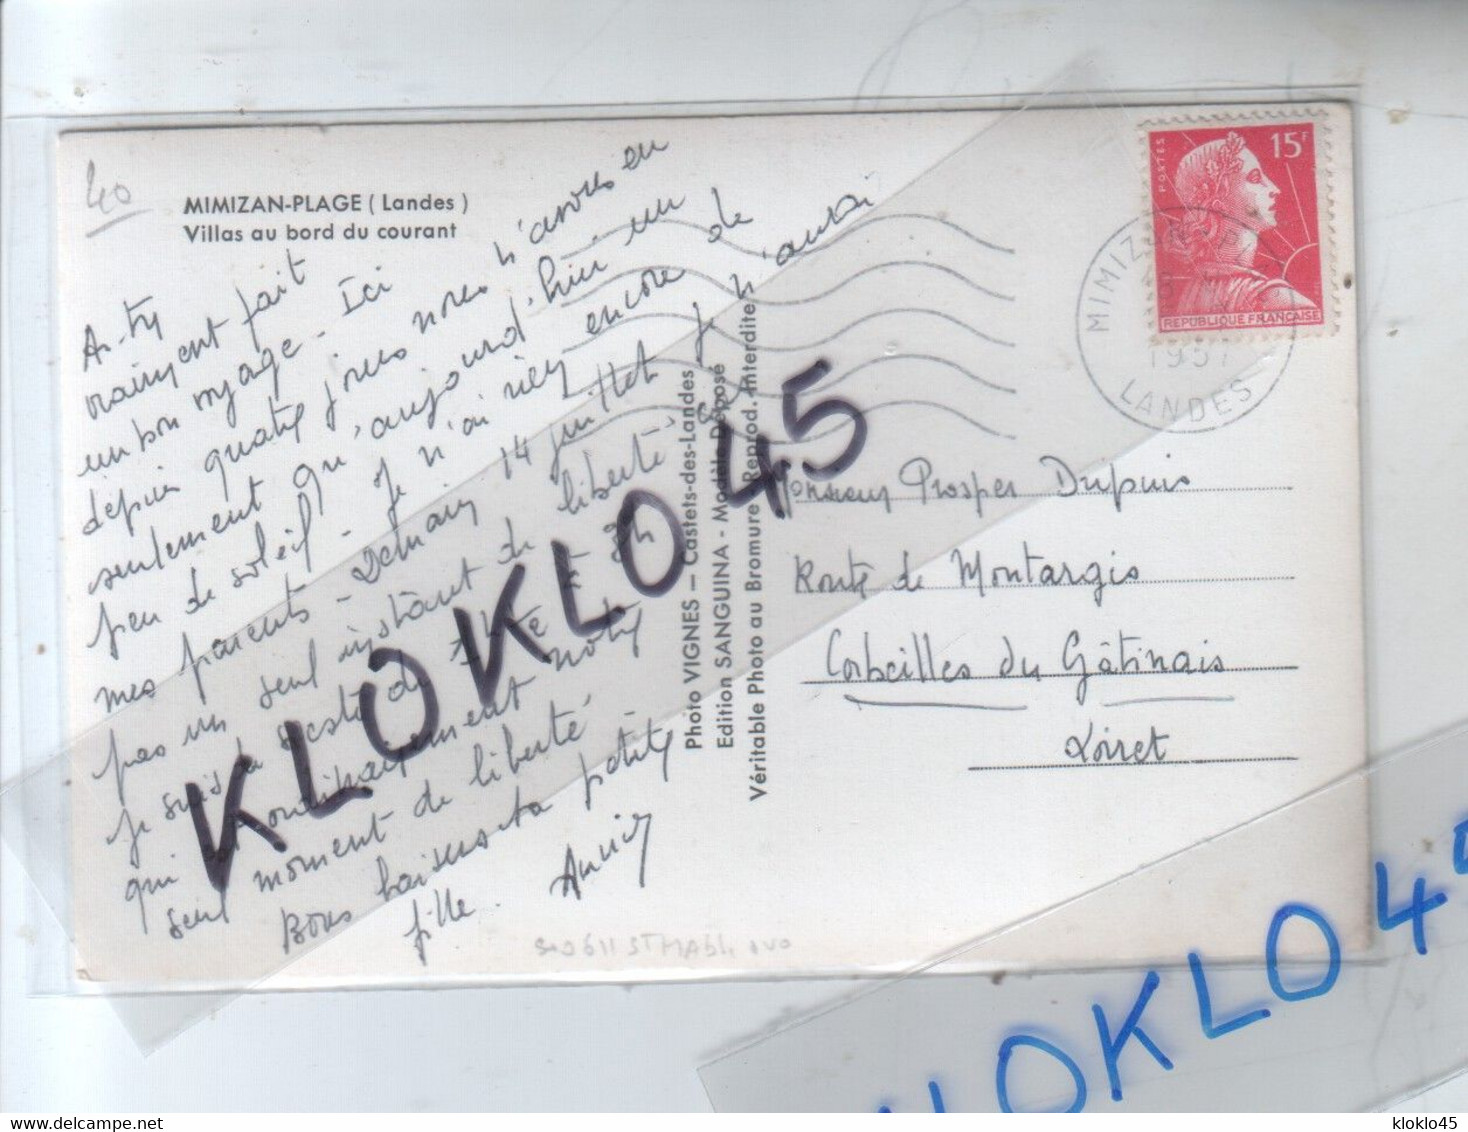 40
MIMIZAN-PLAGE ( Landes )
Villas au bord du courant
As-tu
vraiment fait
un bon voyage. Ici
depuis quatre jours nous n'avons eu
seulement qu', aujourd'hui un
peu de soleil. Je n'ai rien encore de
mes parents. Demain 14 juillet je n'aurai
pas un seul instant de liberté car
je suis de
qui notre
seul moment de liberté
Bons baisers ta petite
fille. Annie
Photo VIGNES — Castets-des-Landes
Edition SANGUINA - Modèle Déposé
Véritable Photo au Bromure Reprod. Interdite
POSTES
15F
REPUBLIQUE FRANÇAISE
MIMIZAN-PLAGE
1957
LANDES
Monsieur Prosper Dupuis
Route de Montargis
Corbeilles du Gâtinais
Loiret
KLOKLO 45
KLOKLO 45
kloklo45